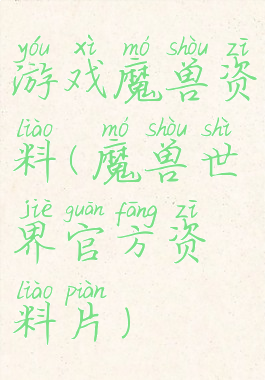 yóu xì mó shòu zī
游戏魔兽资
liào mó shòu shì
料(魔兽世
jiè guān fāng zī
界官方资
liào piàn
料片)